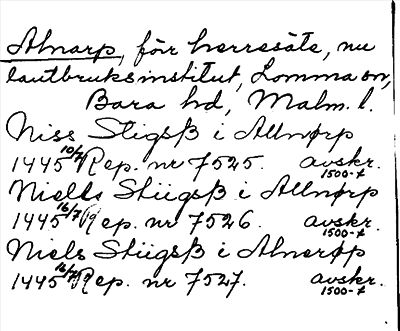 Alnarp, förr herresäte, nu
lantbruksinstitut, Lomma sn,
Bara hd, Malm. l.
Niss Stigsß i Allnørp
1445 10/7 Rep. nr 7525. avskr. 1500-t
Nielss Stiigsß i Allnørp
1445 16/7 Rep. nr 7526. avskr. 1500-t
Niels Stiigsß i Alnerøp
1445 16/7 Rep. nr 7527. avskr. 1500-t